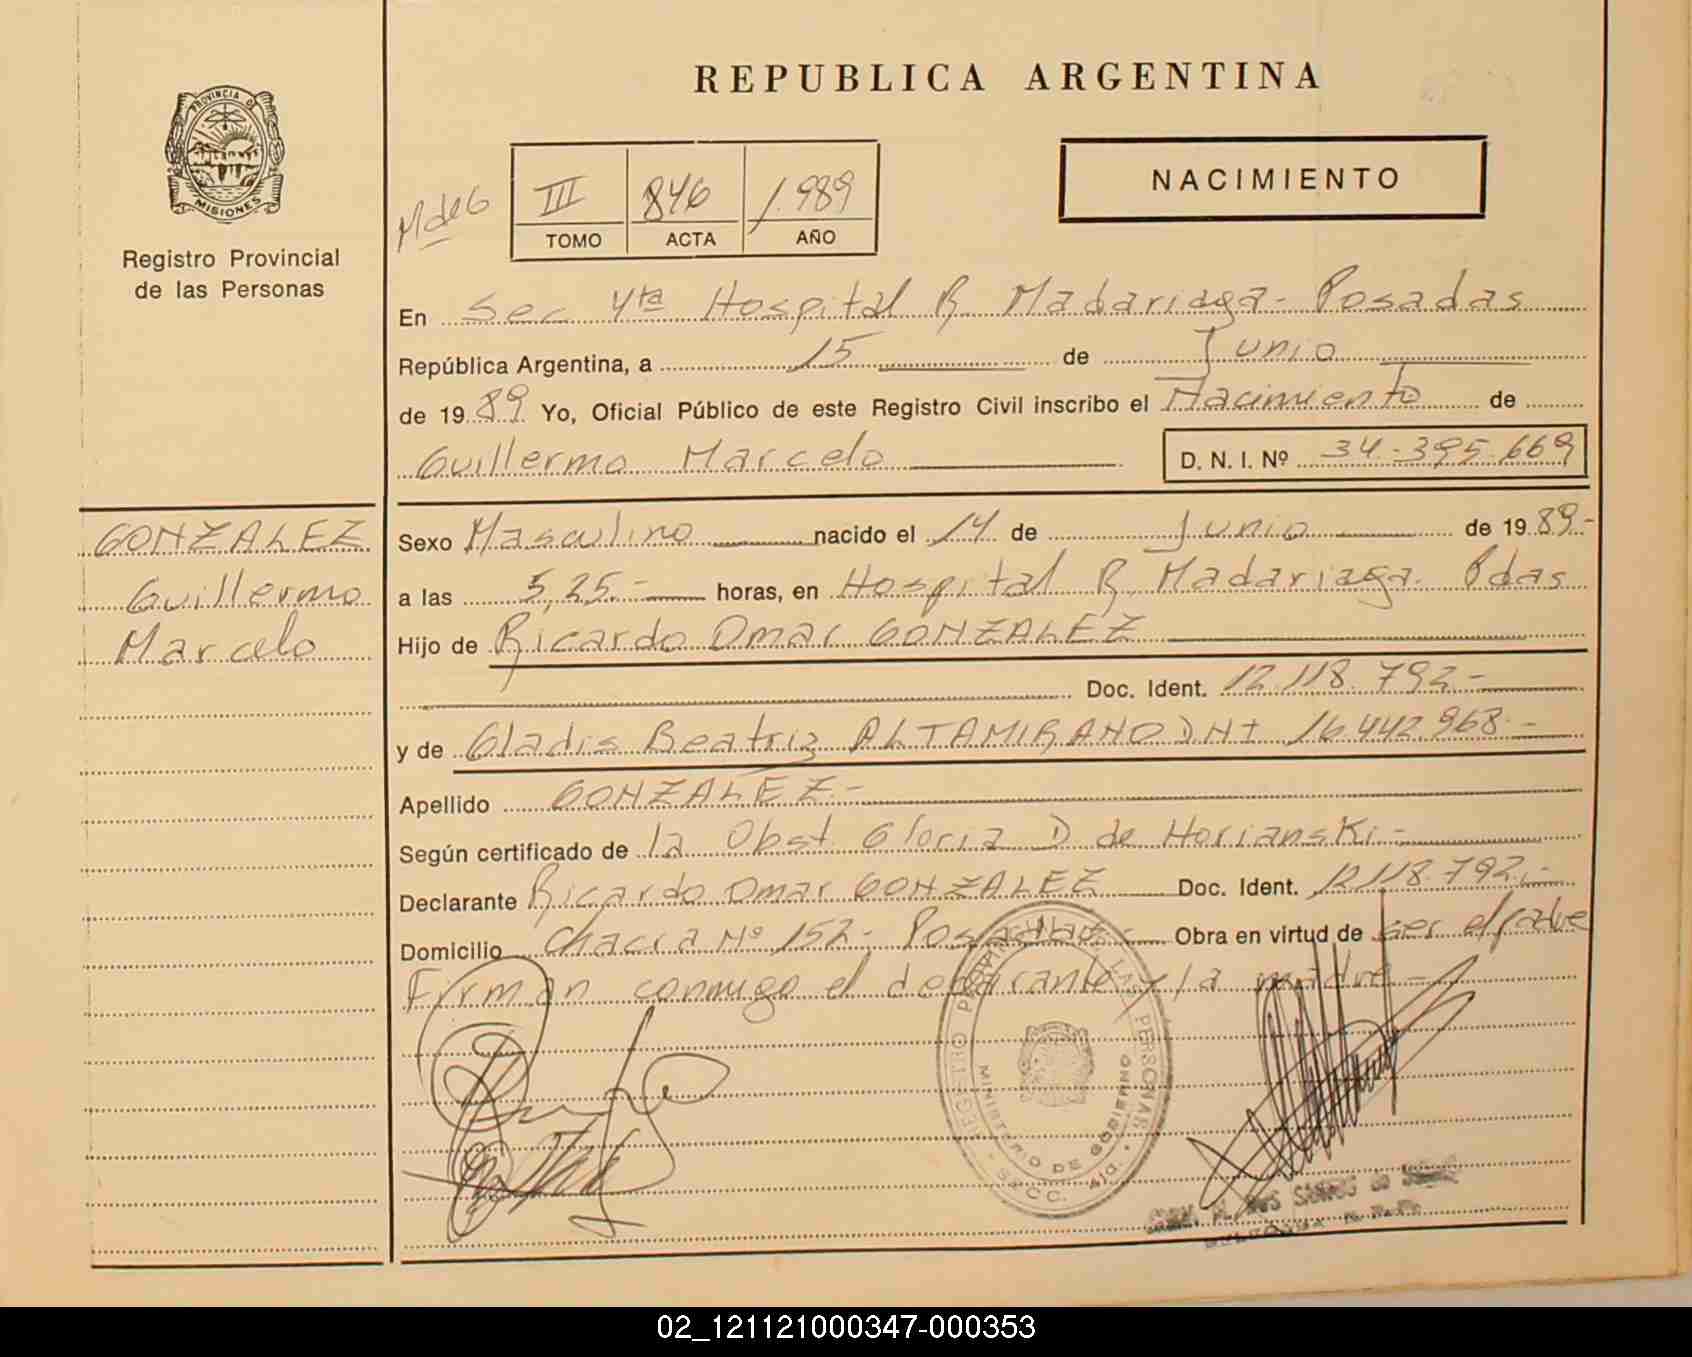 REPUBLICA ARGENTINA
PROVINCIA DE
MISIONES
Registro Provincial
de las Personas
NACIMIENTO
M de G
III 846 1.989
TOMO ACTA AÑO
En Sec 4ta Hospital R Madariaga - Posadas
República Argentina, a 15 de Junio
de 1989 Yo, Oficial Público de este Registro Civil inscribo el Nacimiento de
Guillermo Marcelo D. N. I. Nº 34.395.669
GONZALEZ
Guillermo
Marcelo
Sexo Masculino nacido el 14 de Junio de 1989.-
a las 5,25.- horas, en Hospital R. Madariaga. Pdas
Hijo de Ricardo Omar GONZALEZ
Doc. Ident. 12.118.792.-
y de Gladis Beatriz ALTAMIRANO DNI 16.442.968.-
Apellido GONZALEZ.-
Según certificado de la Obst. Gloria D de Horianski.-
Declarante Ricardo Omar GONZALEZ Doc. Ident. 12.118.792.-
Domicilio Chacra Nº 152.- Posadas.- Obra en virtud de ser el padre
Firman conmigo el declarante y la madre -
REGISTRO PROVINCIAL DE LAS PERSONAS
MINISTERIO DE GOBIERNO
SECC. 4ta.
02_121121000347-000353